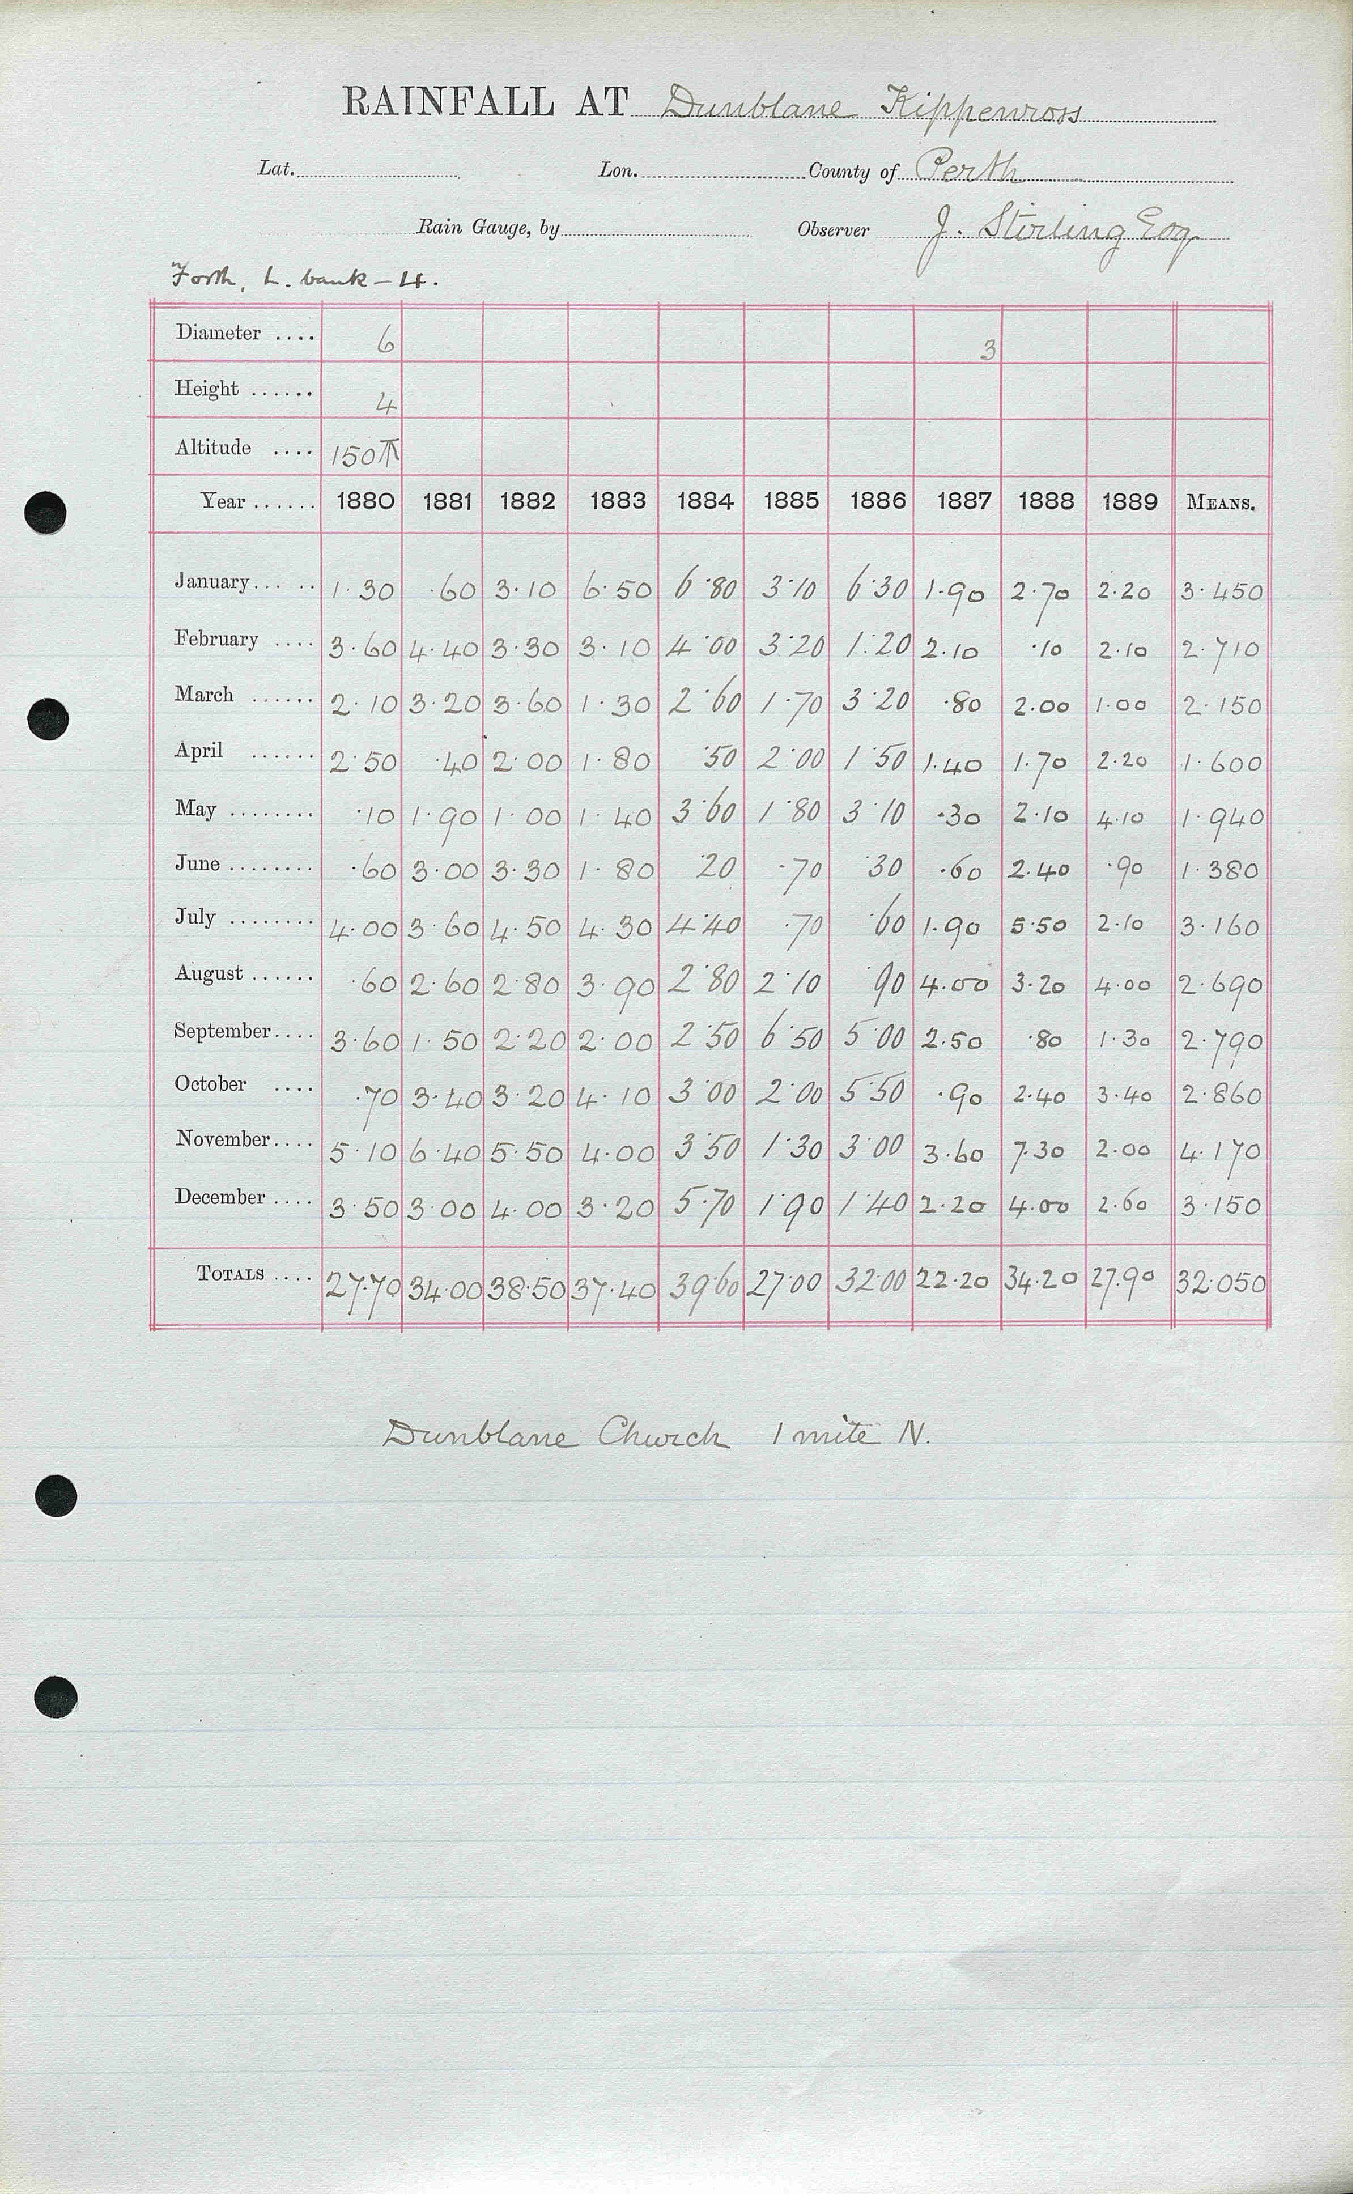 RAINFALL AT Dunblane Kippenross
Lat. Lon. County of Perth
Rain Gauge, by Observer J. Stirling Esq
Forth, L. bank - 4.
Diameter .... 6 3
Height ...... 4
Altitude .... 150 ft
Year ...... 1880 1881 1882 1883 1884 1885 1886 1887 1888 1889 MEANS.
January ..... 1.30 .60 3.10 6.50 6.80 3.10 6.30 1.90 2.70 2.20 3.450
February .... 3.60 4.40 3.30 3.10 4.00 3.20 1.20 2.10 .10 2.10 2.710
March ...... 2.10 3.20 3.60 1.30 2.60 1.70 3.20 .80 2.00 1.00 2.150
April ...... 2.50 .40 2.00 1.80 .50 2.00 1.50 1.40 1.70 2.20 1.600
May ........ .10 1.90 1.00 1.40 3.60 1.80 3.10 .30 2.10 4.10 1.940
June ........ .60 3.00 3.30 1.80 20 .70 30 .60 2.40 .90 1.380
July ........ 4.00 3.60 4.50 4.30 4.40 .70 .60 1.90 5.50 2.10 3.160
August ...... .60 2.60 2.80 3.90 2.80 2.10 90 4.00 3.20 4.00 2.690
September.... 3.60 1.50 2.20 2.00 2.50 6.50 5.00 2.50 .80 1.30 2.790
October .... .70 3.40 3.20 4.10 3.00 2.00 5.50 .90 2.40 3.40 2.860
November.... 5.10 6.40 5.50 4.00 3.50 1.30 3.00 3.60 7.30 2.00 4.170
December .... 3.50 3.00 4.00 3.20 5.70 1.90 1.40 2.20 4.00 2.60 3.150
TOTALS .... 27.70 34.00 38.50 37.40 39.60 27.00 32.00 22.20 34.20 27.90 32.050
Dunblane Church 1 mile N.